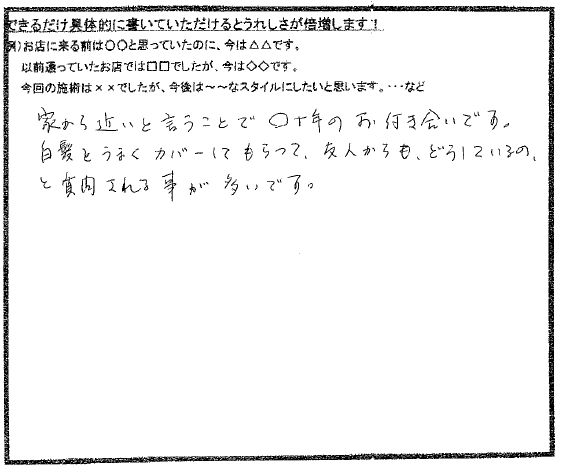 できるだけ具体的に書いていただけるとうれしさが倍増します！
例）お店に来る前は〇〇と思っていたのに、今は△△です。
以前通っていたお店では□□でしたが、今は◇◇です。
今回の施術は××でしたが、今後は～～なスタイルにしたいと思います。…など
家から近いと言うことで〇十年のお付き合いです。
白髪をうまくカバーしてもらって、友人からも、どうしているの、
と質問される事が多いです。